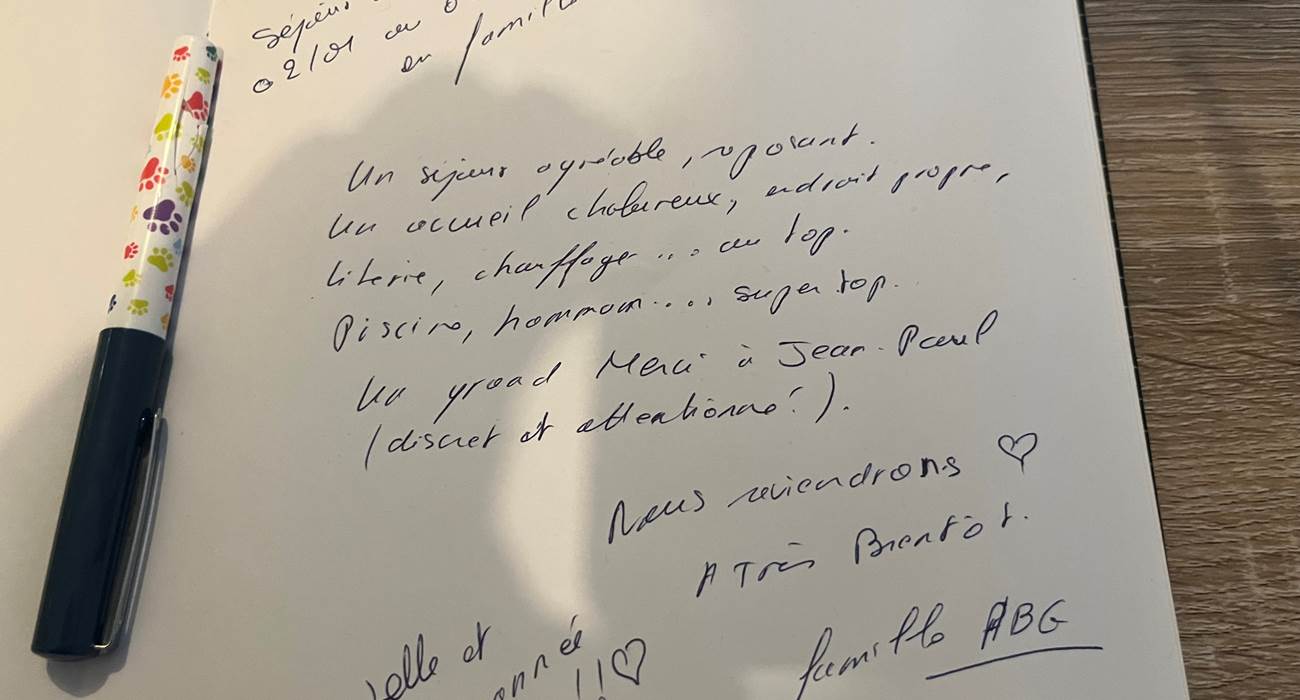 séjour
02/01 au
en famille
Un séjour agréable, reposant.
Un accueil chaleureux, endroit propre,
literie, chauffage... au top.
Piscine, hammam.... super top.
Un grand Merci à Jean-Paul
(discret et attentionné!).
Nous reviendrons ♡
A Très Bientôt.
famille ABG
elle et
onnée
!!♡